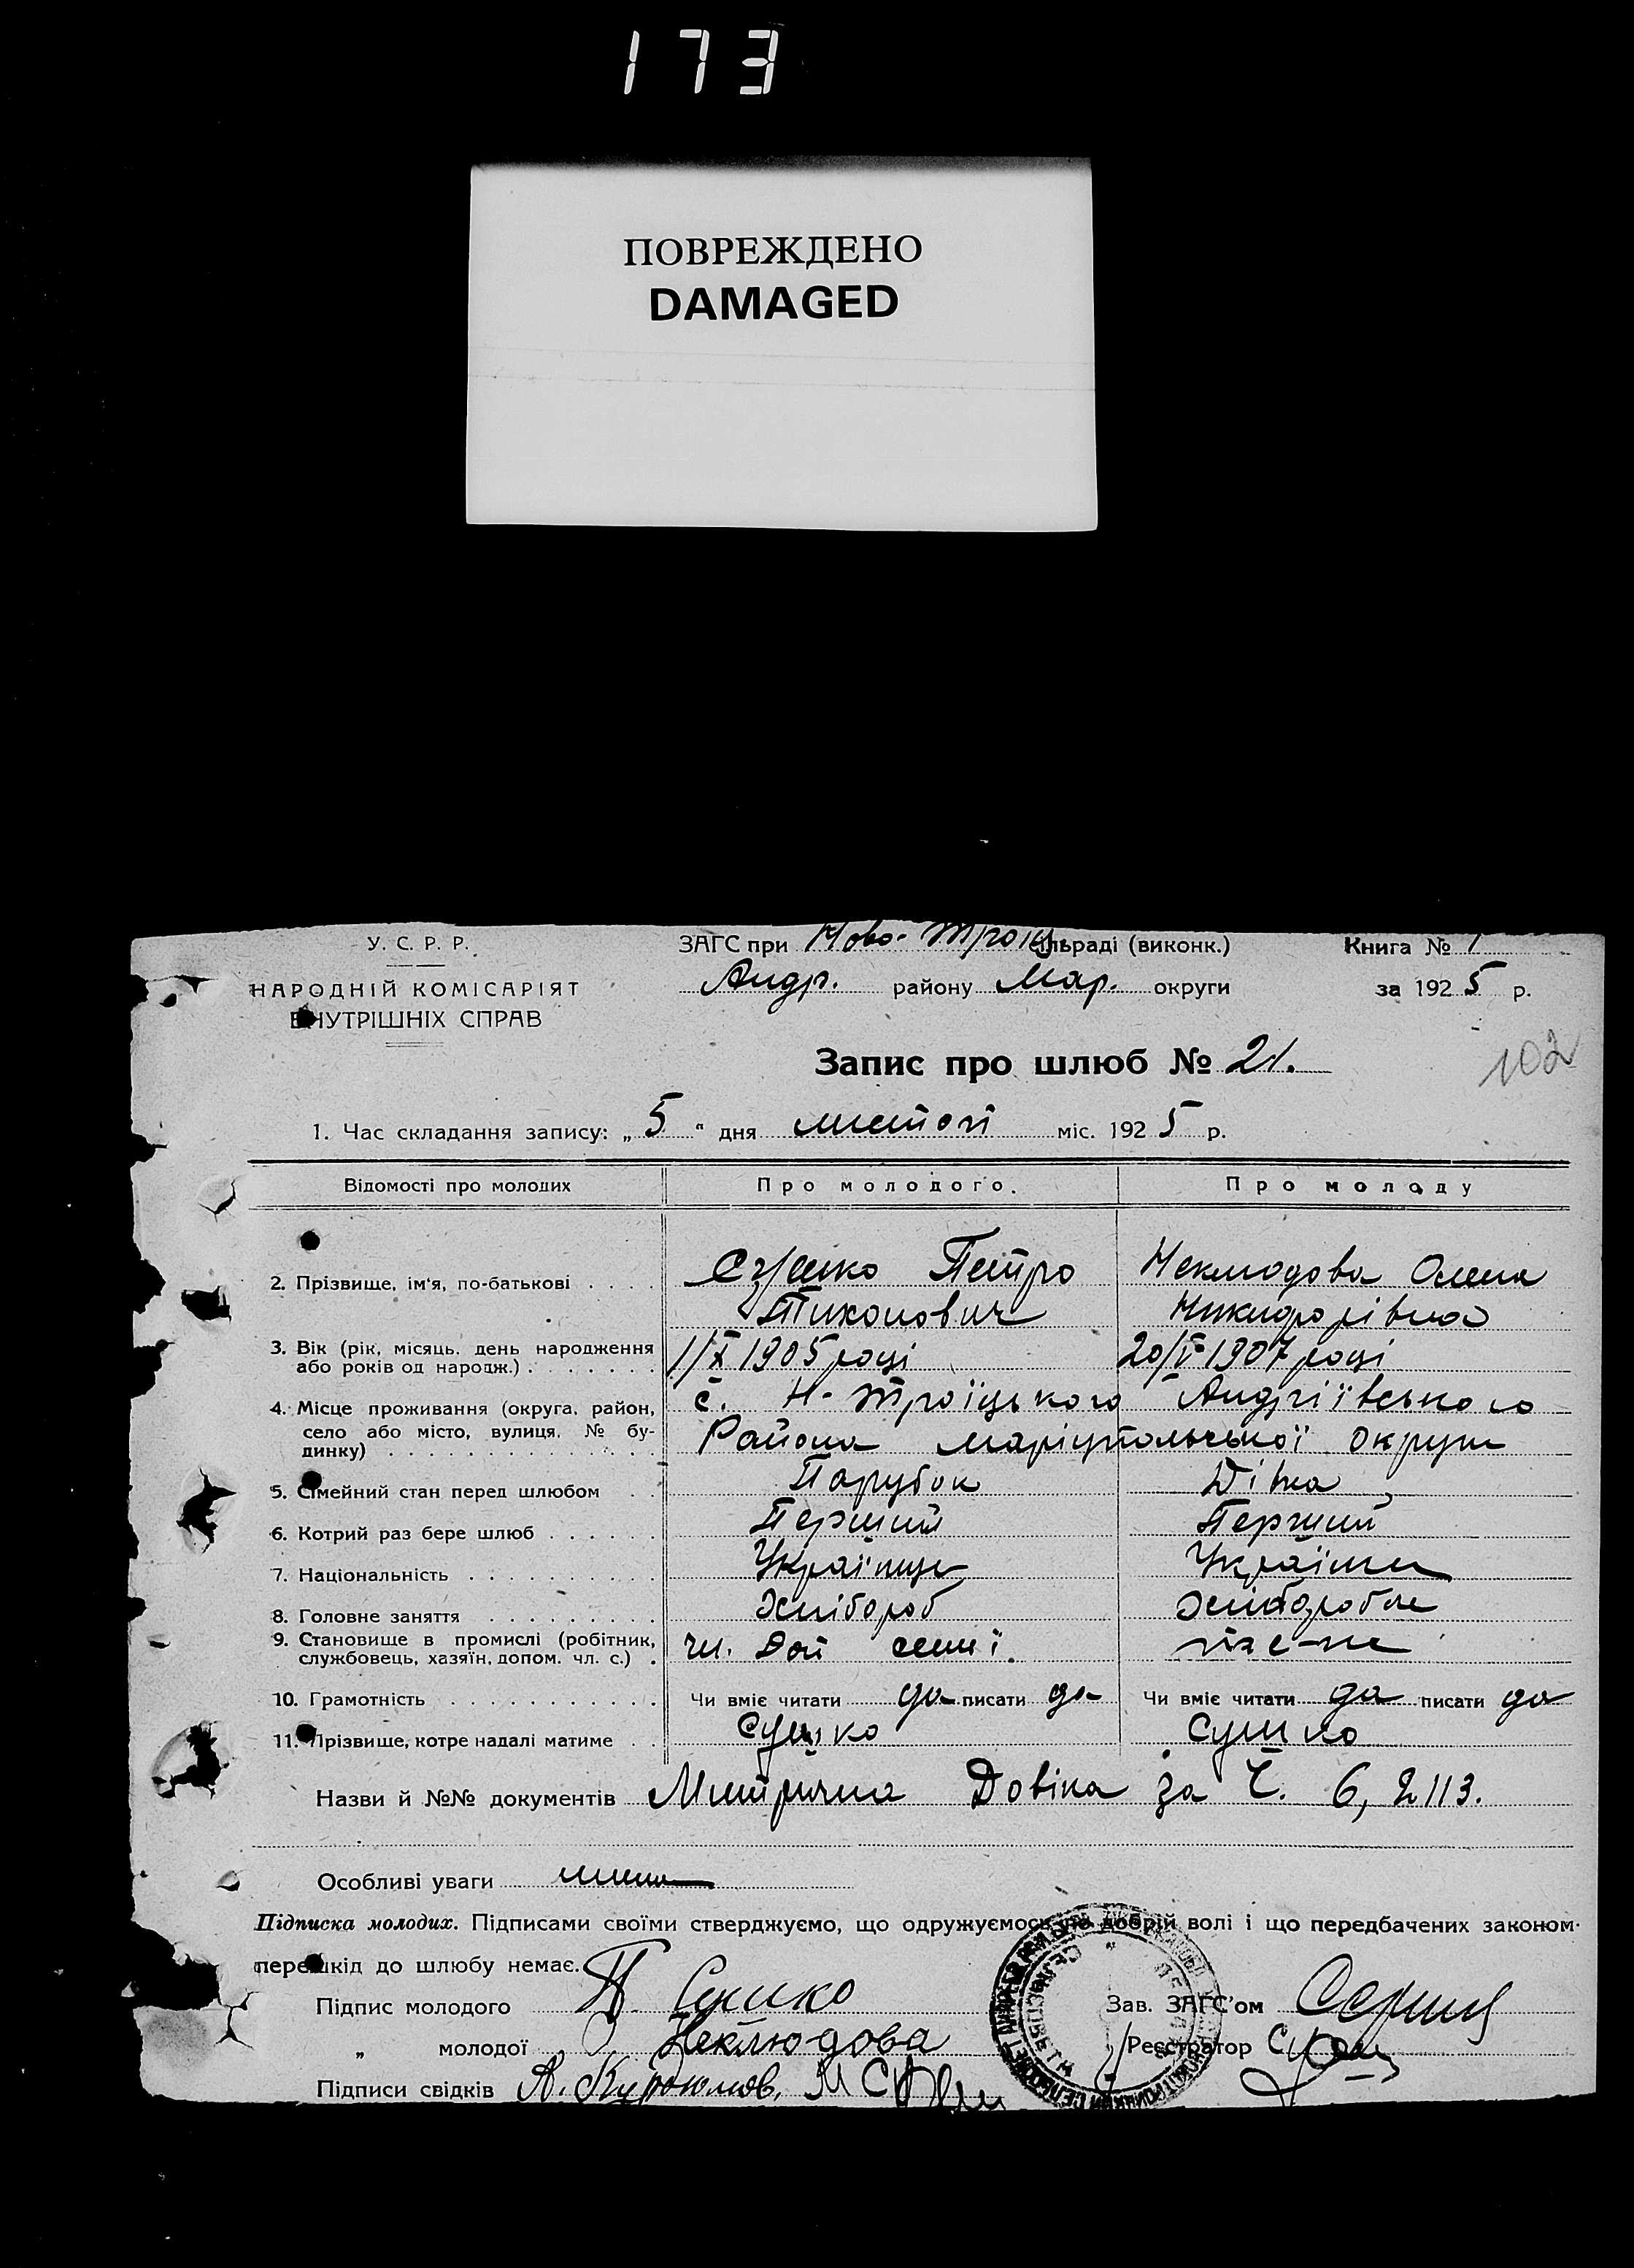 173
ПОВРЕЖДЕНО
DAMAGED
У. С. Р. Р.
НАРОДНІЙ КОМІСАРІЯТ
ВНУТРІШНІХ СПРАВ
ЗАГС при Ново-Троїц раді (виконк.)
Андр. району Мар. округи
Книга № 1
за 1925 р.
102
Запис про шлюб № 21.
1. Час складання запису: „5“ дня лютого міс. 1925 р.
Відомості про молодих Про молодого. Про молоду
2. Прізвище, ім‘я, по-батькові . . . . Сушко Петро Неклюдова Олена
Тихонович
3. Вік (рік, місяць, день народження 1/X 1905 році 20/V 1907 році
або років од народж.) . . . . . . .
4. Місце проживання (округа, район, с. Н-Троїцького Андріївського
село або місто, вулиця, № бу-
динку) . . . . Района Маріупольської округи
5. Сімейний стан перед шлюбом . . Парубок Дівка
6. Котрий раз бере шлюб . . . . . . Перший Перший
7. Національність . . . . . . . . . . Українць Українка
8. Головне заняття . . . . . . . . . Хлібороб
9. Становище в промислі (робітник, чл. семї.
службовець, хазяїн, допом. чл. с.) .
10. Грамотність . . . . . . . . . . . Чи вміє читати да писати да Чи вміє читати да писати да
11. Прізвище, котре надалі матиме . . Сушко Сушко
Назви й №№ документів Митрична Довіка за Ч. 6, 2113.
Особливі уваги
Підписка молодих. Підписами своїми стверджуємо, що одружуємось по добрій волі і що передбачених законом
перешкід до шлюбу немає.
Підпис молодого П. Сушко
Зав. ЗАГС‘ом
„ молодої Неклюдова
Реєстратор
Підписи свідків А.